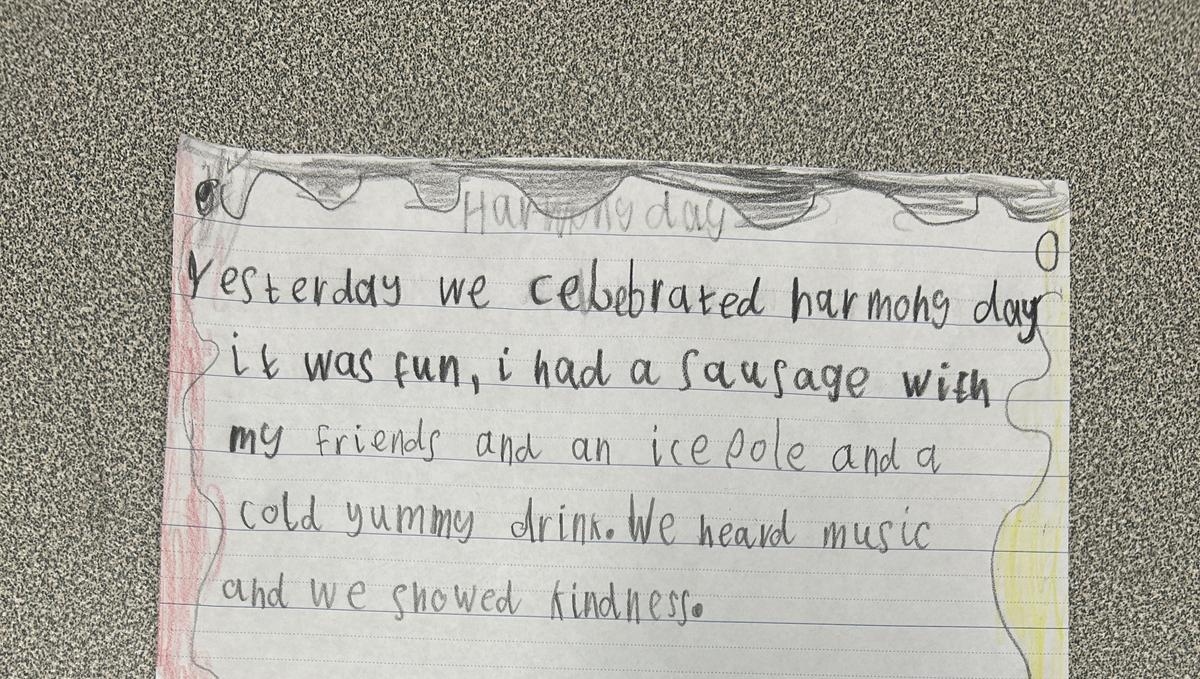 Harmony day
Yesterday we celebrated harmony day
it was fun, i had a sausage with
my friends and an ice pole and a
cold yummy drink. We heard music
and we showed kindness.